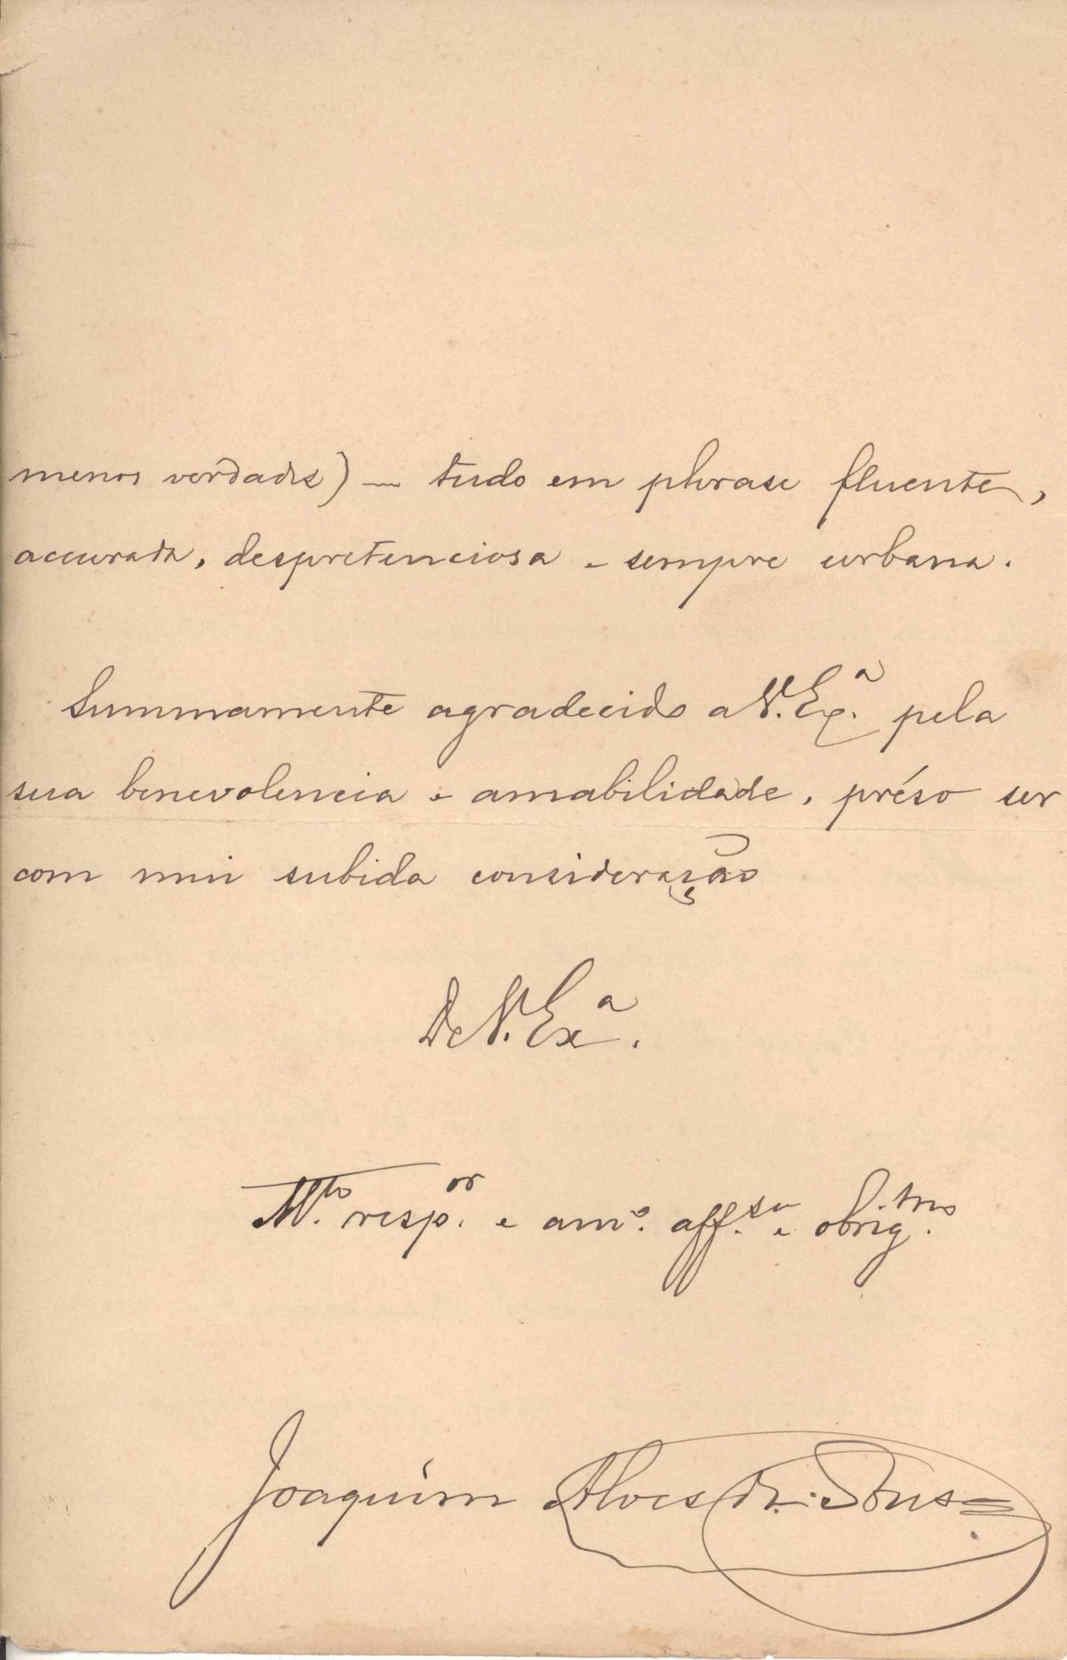 menos verdades) — tudo em phrase fluente,
accurada, despretenciosa e sempre urbana.
Summamente agradecido a V. Ex.ª pela
sua benevolencia e amabilidade, préso ser
com mui subida consideração
De V. Exª.
M.to resp.or e am.º aff.so e obrig.mo
Joaquim Alves de Sousa